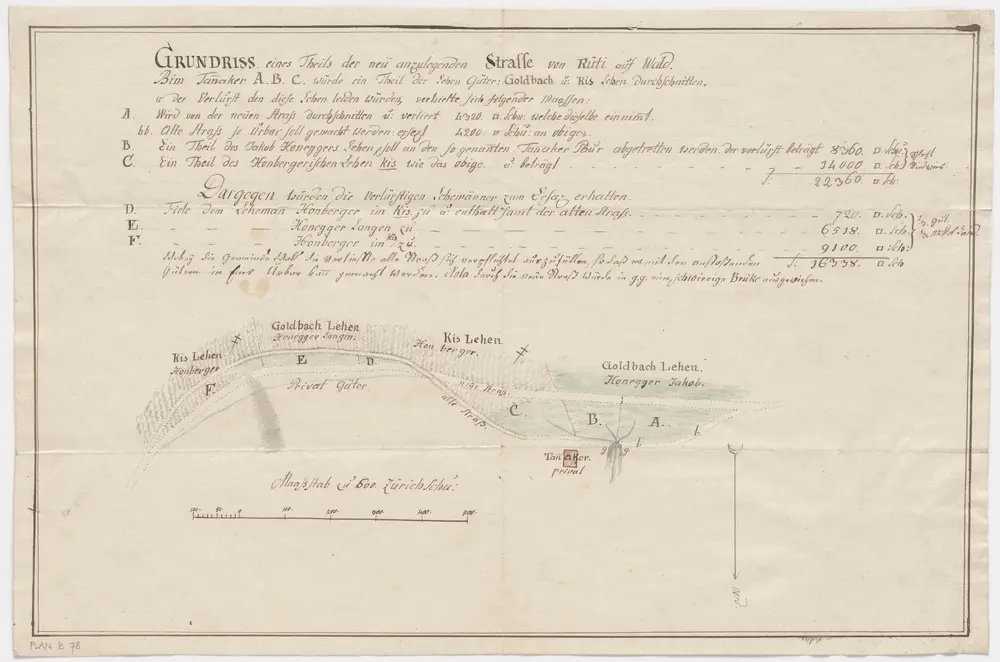 GRUNDRISS eines Theils der neü anzulegenden Strasse von Rüti auff Wald.
Bim Tanaker A. B. C. würde ein Theil der Lehen Güter: Goldbach ü. Kis Lehen Durchschnitten,
u der Verlürst den diese Lehen leiden würden, verhielte sich folgender Maassen:
A. Wird von der neüen Strass durchschnitten ü. verliert 4320. □ Schu. welche dieselbe einnimt.
bb. Alte Strass so Urbar soll gemacht werden: ersezt 4200. □ Schu: an obiges.
B. Ein Theil des Jakob Honeggers Lehen, soll an den so genanten Tanaker Bur abgetretten werden, der verlürst beträgt 8360. □ Schu
C. Ein Theil des Honbergerischen Lehen Kis wie das obige. ü beträgt 14000 □ Sch
S. 22360. □ Sch:
Dargegen würden die Verlürstigen Lehemäner zum Ersaz erhalten.
D. Fiele dem Leheman Honberger im Kis zu ü. enthält samt der alten Strass. 720. □ Sch.
E. Honegger Langen zu 6518. □ Sch.
F. Honberger im Kis zu. 9100. □ Sch:
S. 16338. □ Sch
Wobey die Gemeinde Wald die alte Strass sich verpflichtet auszufüllen, so dass es mit den anstossenden
Gütern in gemacht werden. die neüe Strass würde in g.g. eine schwirrige Brüke ausgewichen.
Goldbach Lehen
Honegger Langen:
Kis Lehen
Honberger.
Kis Lehen
Honberger
E
D.
F
Privat Güter.
neüe Strass
alte Strass.
Goldbach Lehen.
Honegger Jakob.
C.
B.
A.
b
b
g
g
Tanaker.
privat
Maassstab zu 600. Zürich Schu:
100. 50. 0 100. 200. 300. 400. 500.
Nord.
PLAN E 78